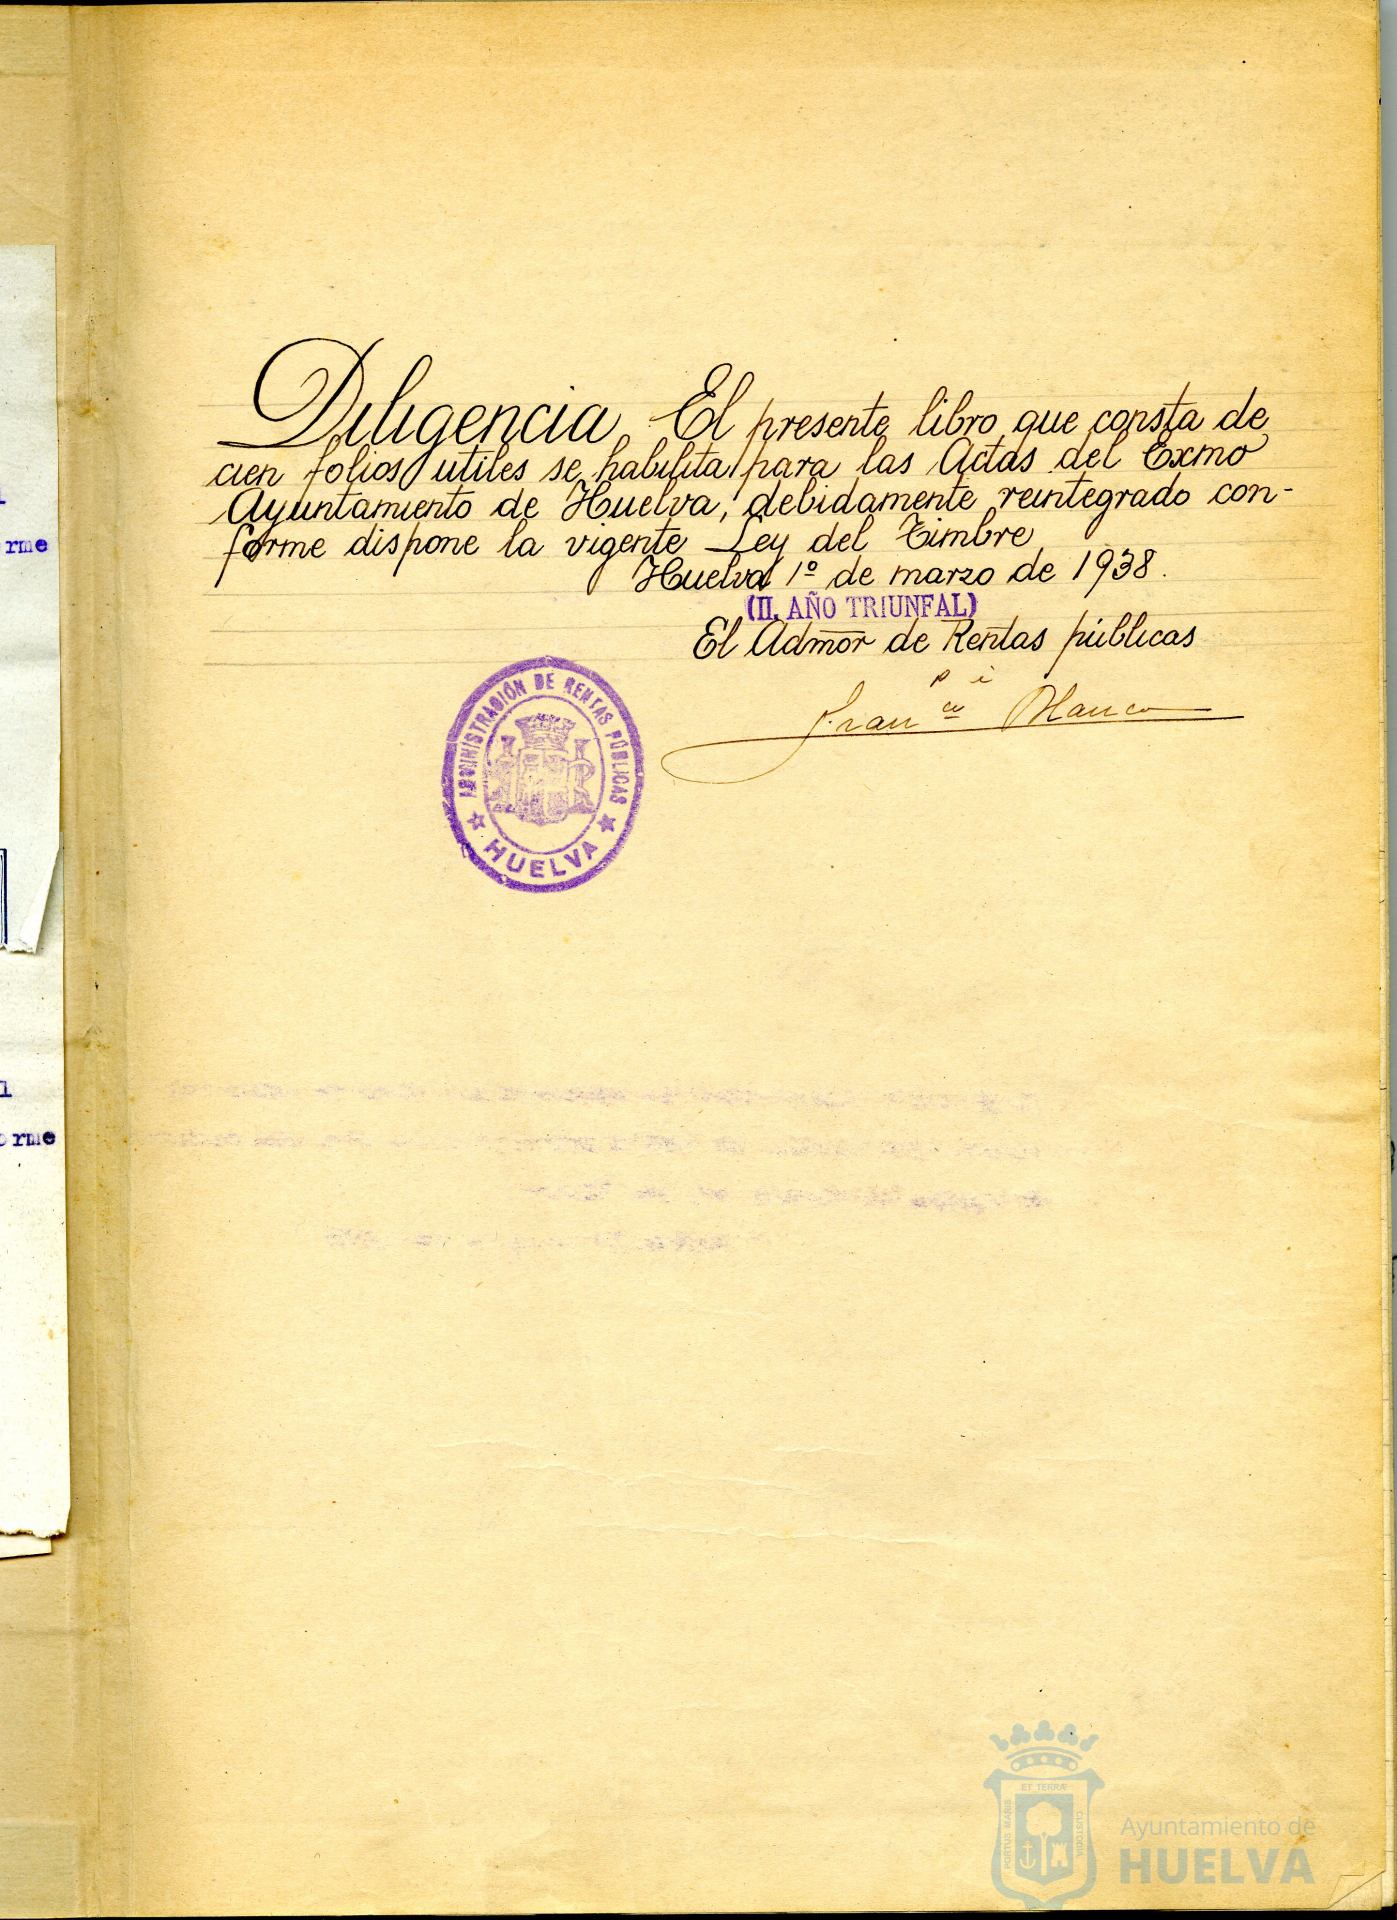 Diligencia El presente libro que consta de
cien folios utiles se habilita para las Actas del Exmo
Ayuntamiento de Huelva, debidamente reintegrado con-
forme dispone la vigente Ley del Timbre
Huelva 1º de marzo de 1938.
(II. AÑO TRIUNFAL)
El Admor de Rentas públicas
p i
Franco Blanco
ADMINISTRACIÓN DE RENTAS PÚBLICAS
HUELVA
rme
l
orme
PORTUS MARIS ET TERRÆ CUSTODIA
Ayuntamiento de
HUELVA